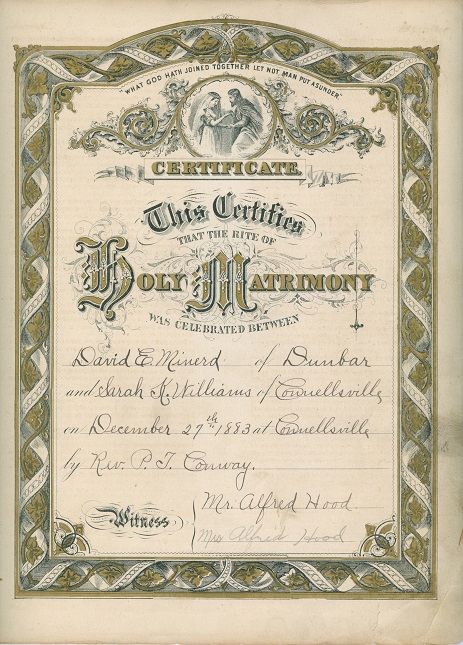 "WHAT GOD HATH JOINED TOGETHER LET NOT MAN PUT ASUNDER"
CERTIFICATE.
This Certifies
THAT THE RITE OF
HOLY MATRIMONY
WAS CELEBRATED BETWEEN
David E. Minerd of Dunbar
and Sarah K. Williams of Connellsville
on December 27th 1883 at Connellsville
by Rev. P. T. Conway.
Witness
Mr. Alfred Hood
Mrs Alfred Hood